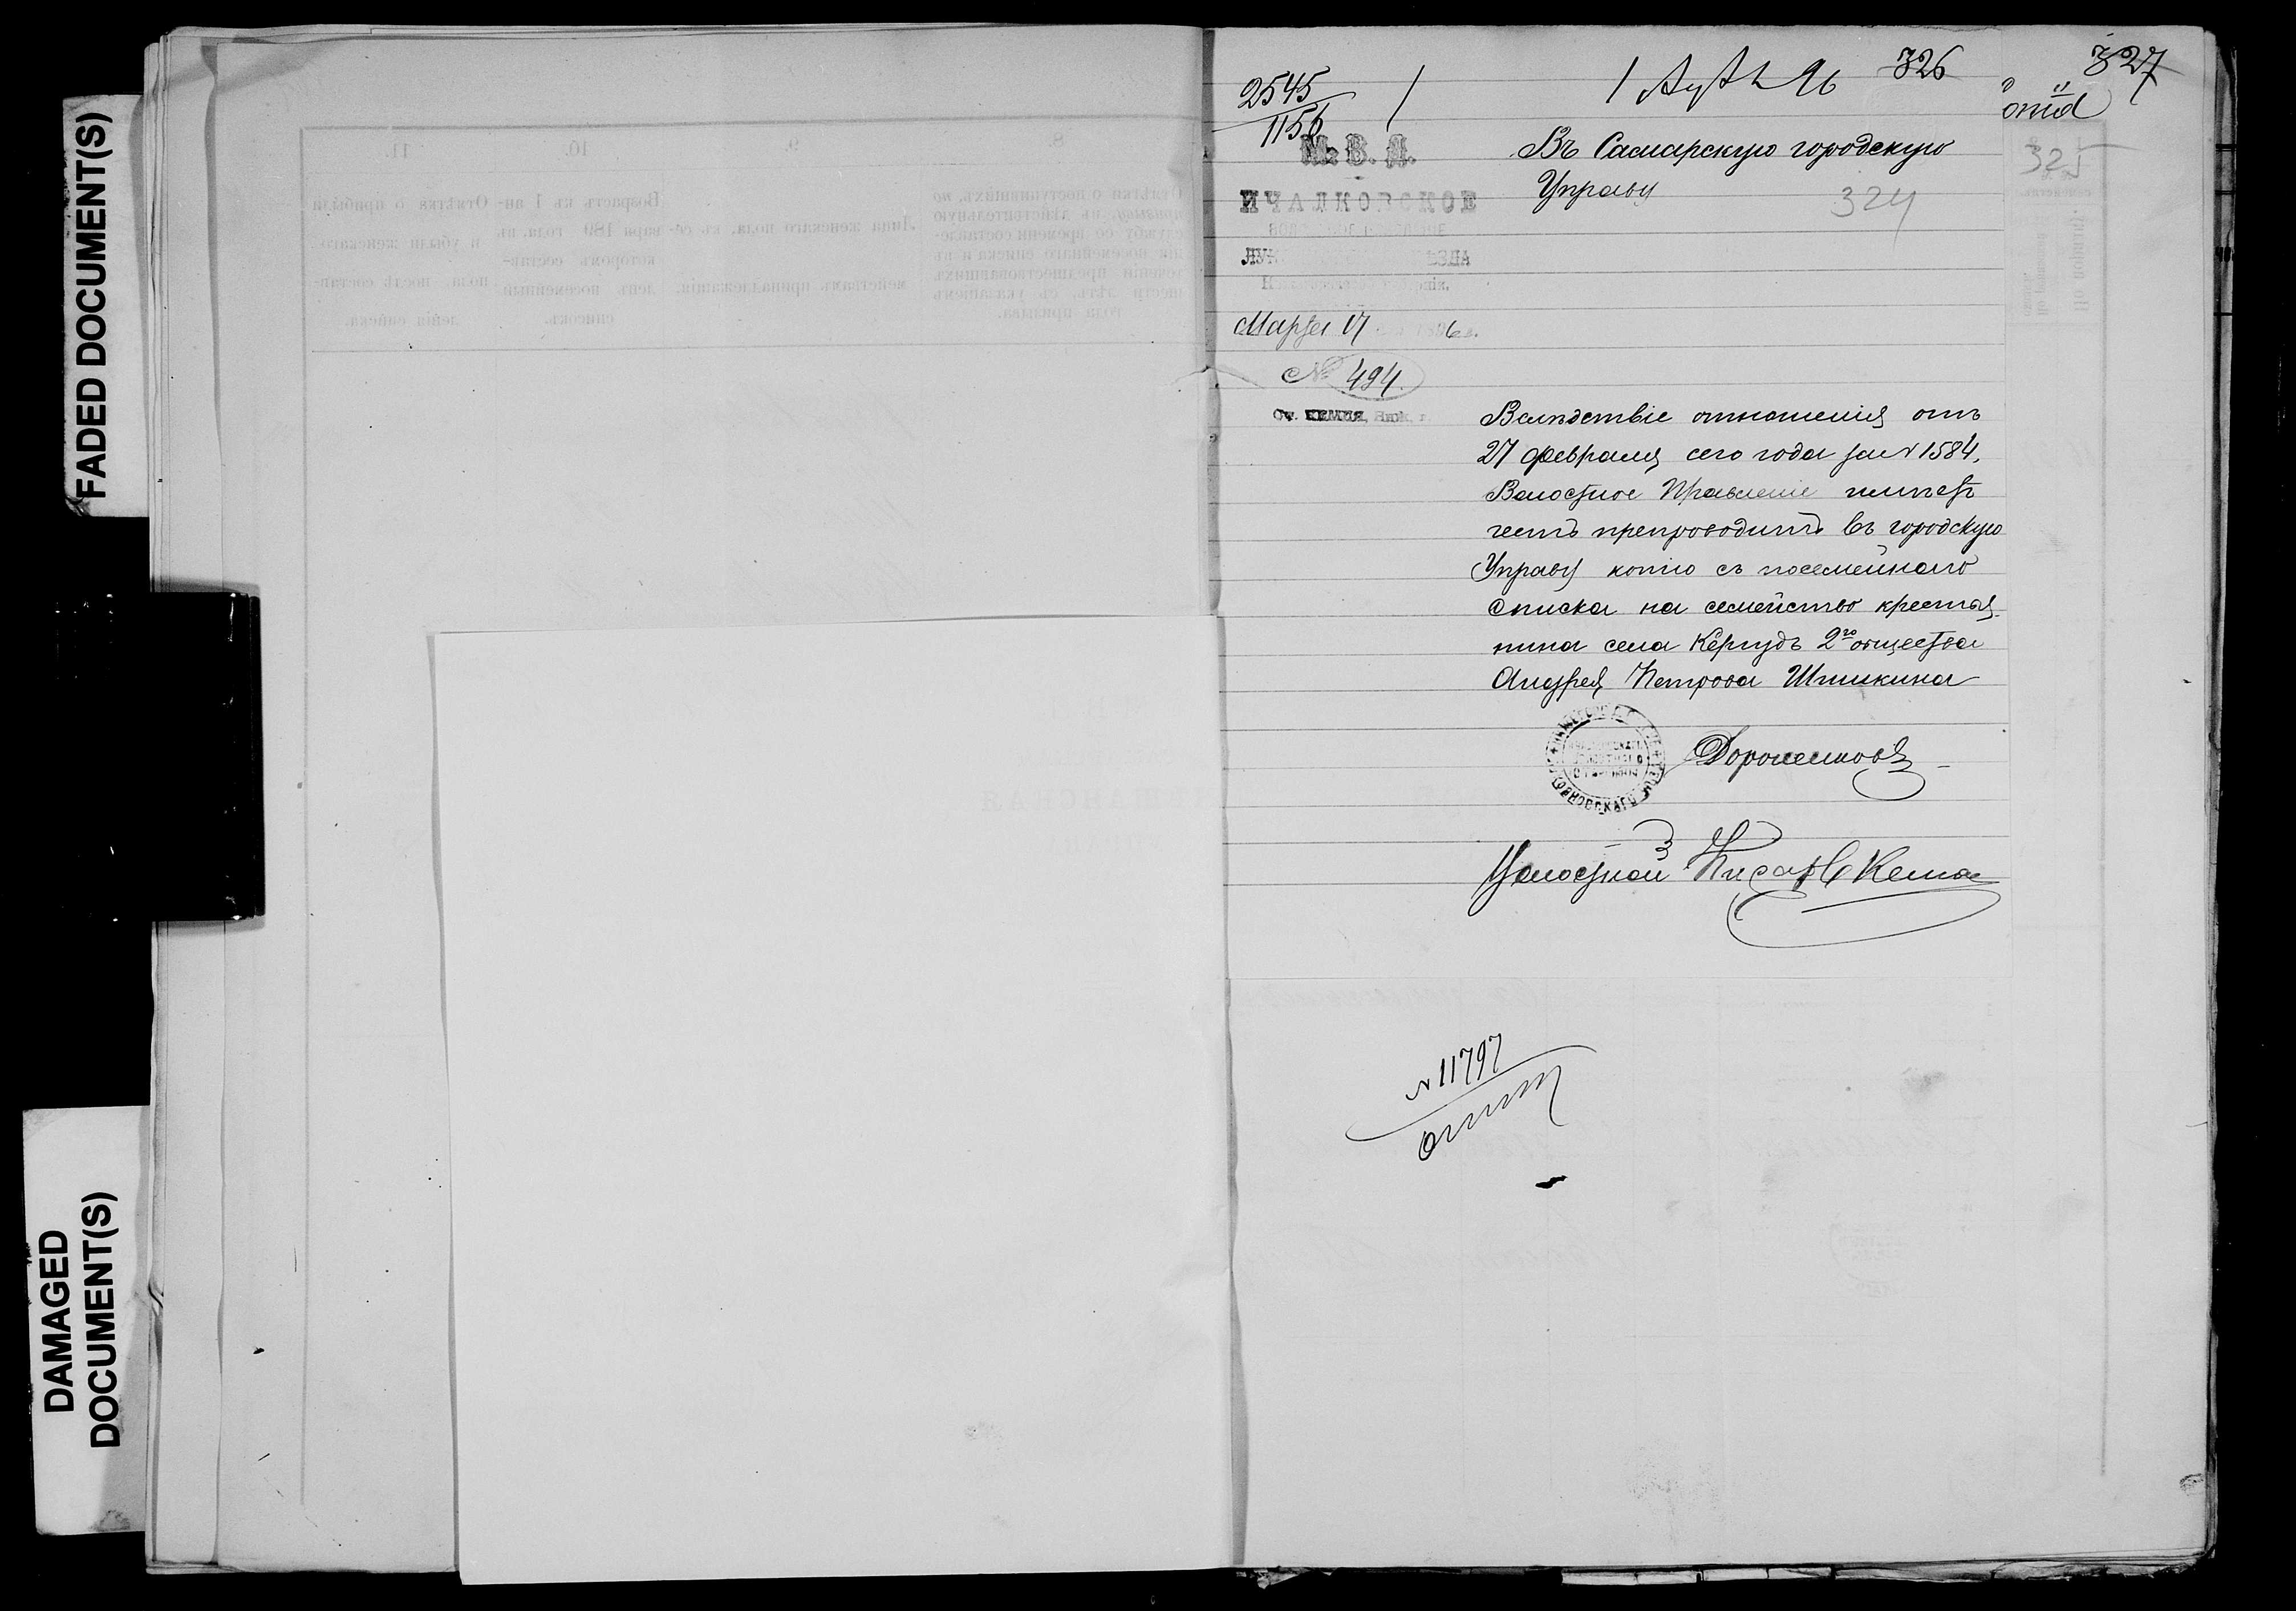 FADED DOCUMENT(S)
DAMAGED
DOCUMENT(S)
326
327
325
324
2545
1156
М. В. Д.
ИЧАЛКОВСКОЕ
Марта 17 1896 г.
№ 494.
Ст. КЕМЛЯ, Ниж. г.
Въ Самарскую городскую
Управу
Вслѣдствіе отношенія отъ
27 февраля сего года за № 1584,
Волостное Правленіе имѣетъ
честь препроводить въ городскую
Управу копію съ посемейнаго
списка на семейство крестья-
нина села Кергудъ 2го общества
Андрея Петрова Шишкина
Волостной Писарь
№ 11797
8.
9.
10.
11.
Отмѣтки о поступившихъ по
призыву въ дѣйствительную
службу со времени составле-
нія посемейнаго списка и въ
теченіи предшествовавшихъ
шести лѣтъ, съ указаніемъ
года призыва.
Лица женскаго пола, къ се-
мействамъ принадлежащія.
Возрастъ къ 1 ян-
варя 189 года, въ
которомъ состав-
ленъ посемейный
списокъ.
Отмѣтка о прибыли
и убыли женскаго
пола, послѣ состав-
ленія списка.